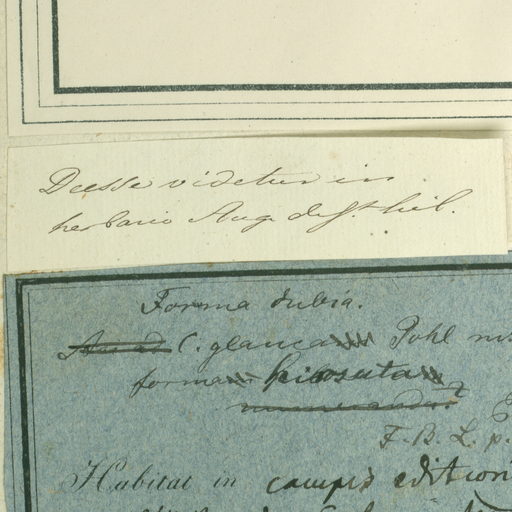 Deesse videtur in
herbario Aug. de St. hil.
Forma dubia.
C. glauca Pohl
forma hirsuta
F. B. L. p.
Habitat in campis edition